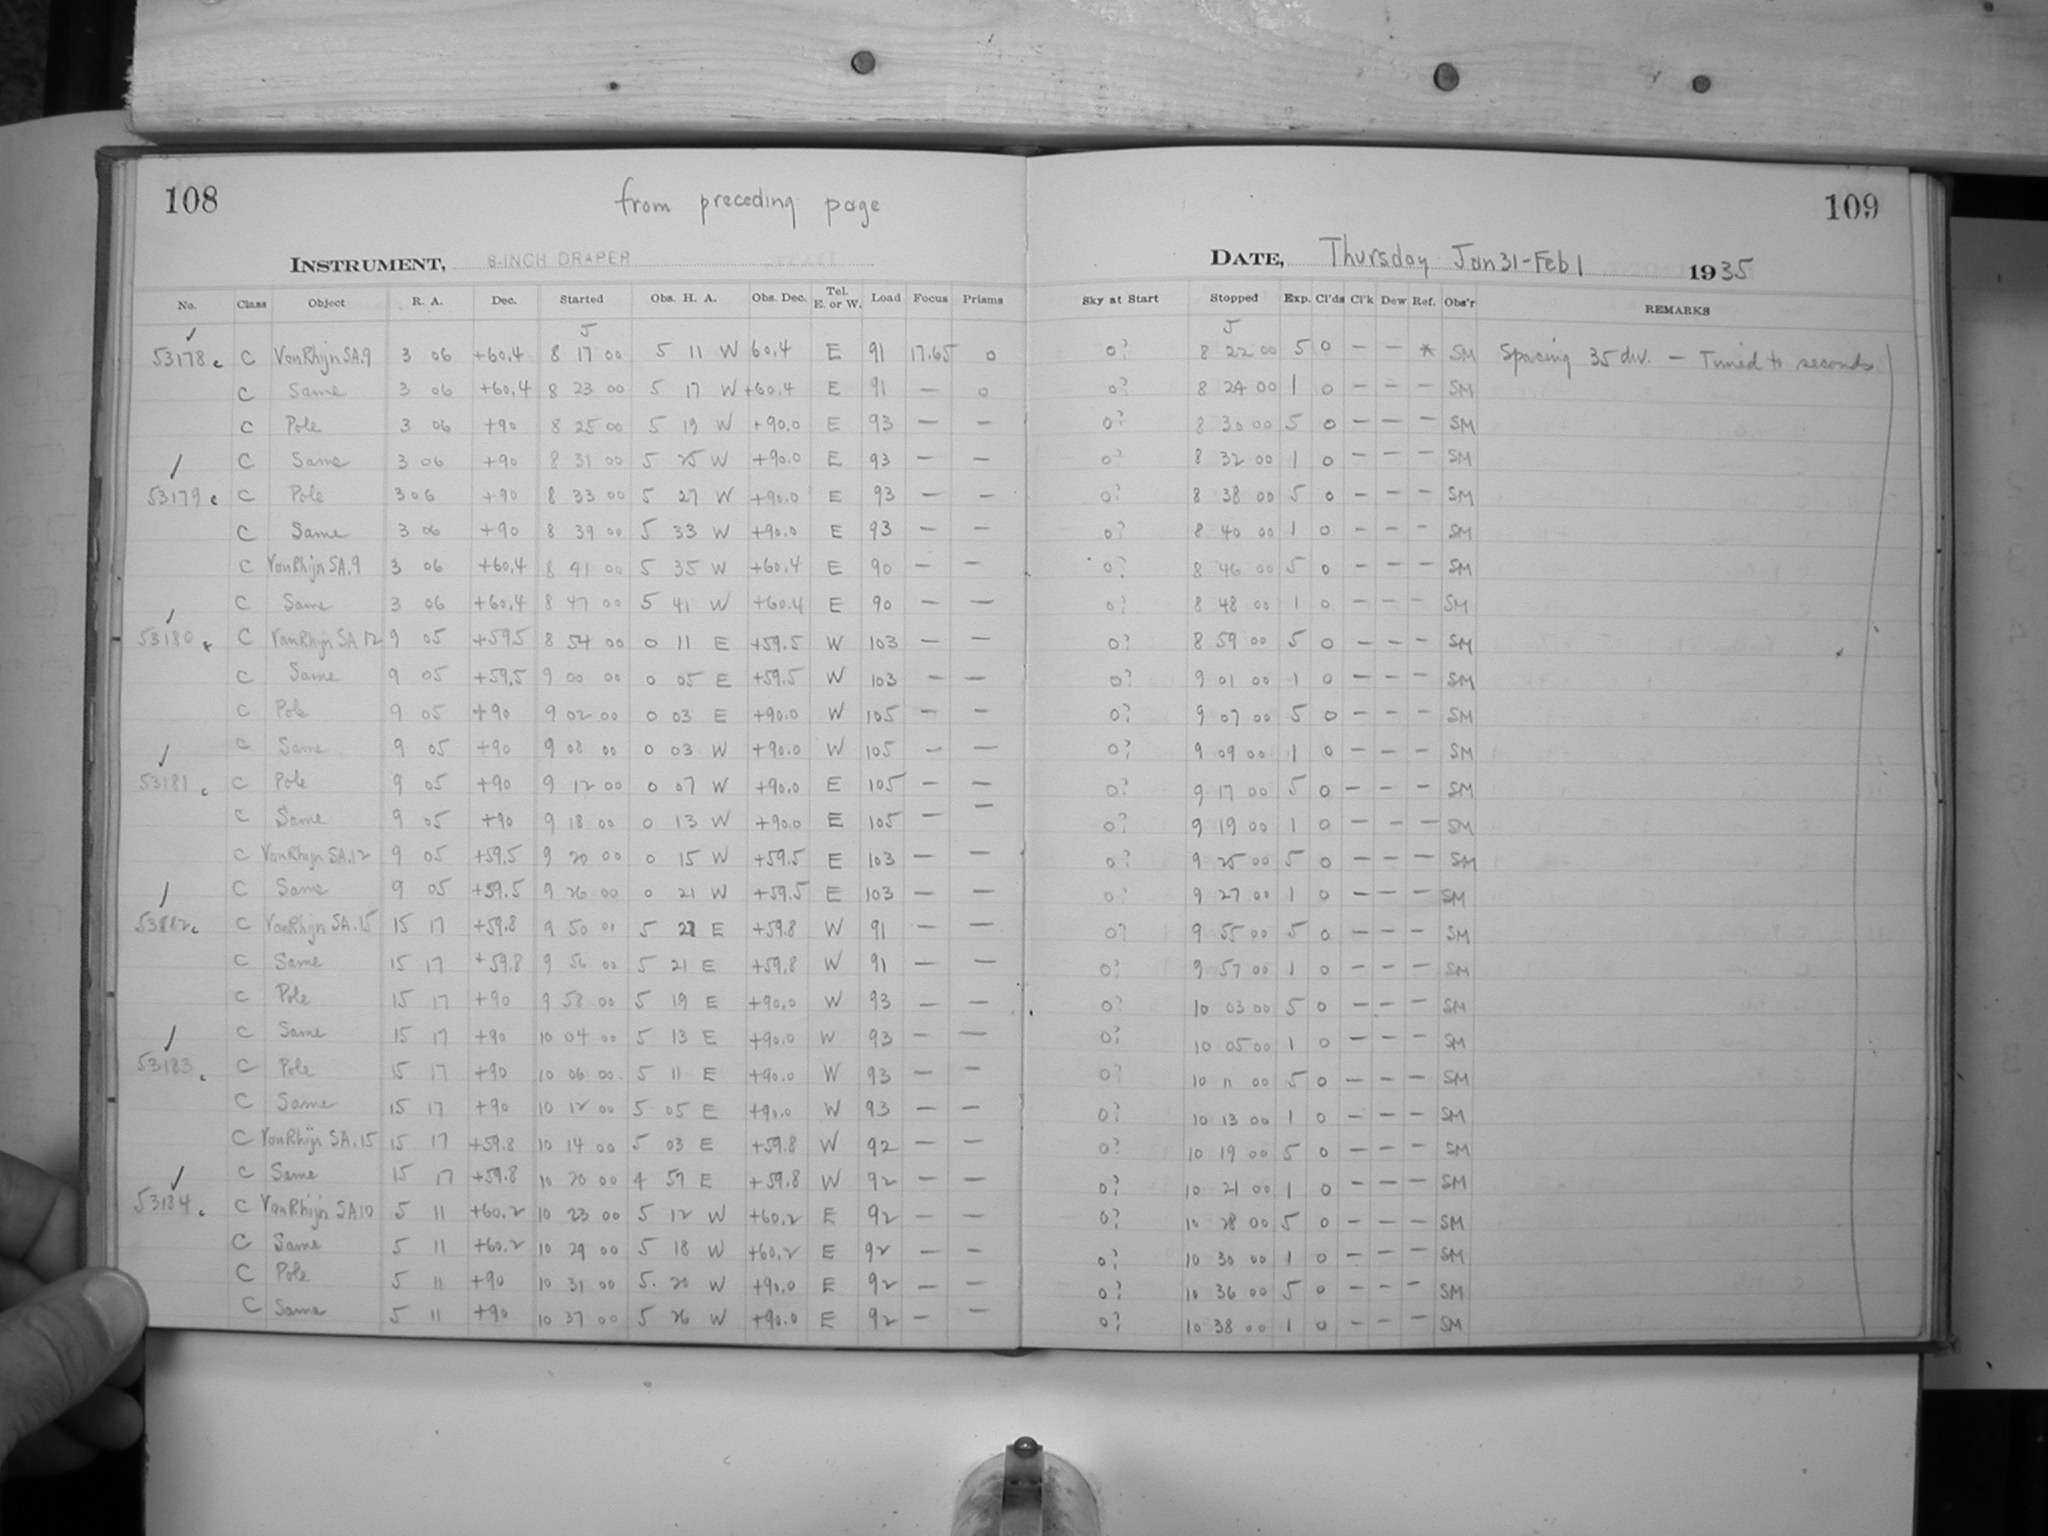 108
from preceding page
109
INSTRUMENT, 8-INCH DRAPER
DATE, Thursday Jan 31-Feb 1 1935
No. Class Object R. A. Dec. Started Obs. H. A. Obs. Dec. Tel. E. or W. Load Focus Prisms Sky at Start Stopped Exp. Cl'ds Cl'k Dew Ref. Obs'r REMARKS
J J
53178 c C VanRhijn SA.9 3 06 +60.4 8 17 00 5 11 W 60.4 E 91 17.65 0 0? 8 22 00 5 0 — — * SM Spacing 35 div. — Timed to seconds
C Same 3 06 +60.4 8 23 00 5 17 W +60.4 E 91 — 0 0? 8 24 00 1 0 — — — SM
C Pole 3 06 +90 8 25 00 5 19 W +90.0 E 93 — — 0? 8 30 00 5 0 — — — SM
C Same 3 06 +90 8 31 00 5 25 W +90.0 E 93 — — 0? 8 32 00 1 0 — — — SM
53179 c C Pole 3 06 +90 8 33 00 5 27 W +90.0 E 93 — — 0? 8 38 00 5 0 — — — SM
C Same 3 06 +90 8 39 00 5 33 W +90.0 E 93 — — 0? 8 40 00 1 0 — — — SM
C VanRhijn SA.9 3 06 +60.4 8 41 00 5 35 W +60.4 E 90 — — 0? 8 46 00 5 0 — — — SM
C Same 3 06 +60.4 8 47 00 5 41 W +60.4 E 90 — — 0? 8 48 00 1 0 — — — SM
53180 c C VanRhijn SA 12 9 05 +59.5 8 54 00 0 11 E +59.5 W 103 — — 0? 8 59 00 5 0 — — — SM
C Same 9 05 +59.5 9 00 00 0 05 E +59.5 W 103 — — 0? 9 01 00 1 0 — — — SM
C Pole 9 05 +90 9 02 00 0 03 E +90.0 W 105 — — 0? 9 07 00 5 0 — — — SM
C Same 9 05 +90 9 08 00 0 03 W +90.0 W 105 — — 0? 9 09 00 1 0 — — — SM
53181 c C Pole 9 05 +90 9 12 00 0 07 W +90.0 E 105 — — 0? 9 17 00 5 0 — — — SM
C Same 9 05 +90 9 18 00 0 13 W +90.0 E 105 — — 0? 9 19 00 1 0 — — — SM
C VanRhijn SA.12 9 05 +59.5 9 20 00 0 15 W +59.5 E 103 — — 0? 9 25 00 5 0 — — — SM
C Same 9 05 +59.5 9 26 00 0 21 W +59.5 E 103 — — 0? 9 27 00 1 0 — — — SM
53182 c C VanRhijn SA.15 15 17 +59.8 9 50 00 5 27 E +59.8 W 91 — — 0? 9 55 00 5 0 — — — SM
C Same 15 17 +59.8 9 56 00 5 21 E +59.8 W 91 — — 0? 9 57 00 1 0 — — — SM
C Pole 15 17 +90 9 58 00 5 19 E +90.0 W 93 — — 0? 10 03 00 5 0 — — — SM
C Same 15 17 +90 10 04 00 5 13 E +90.0 W 93 — — 0? 10 05 00 1 0 — — — SM
53183 c C Pole 15 17 +90 10 06 00 5 11 E +90.0 W 93 — — 0? 10 11 00 5 0 — — — SM
C Same 15 17 +90 10 12 00 5 05 E +90.0 W 93 — — 0? 10 13 00 1 0 — — — SM
C VanRhijn SA.15 15 17 +59.8 10 14 00 5 03 E +59.8 W 92 — — 0? 10 19 00 5 0 — — — SM
C Same 15 17 +59.8 10 20 00 4 57 E +59.8 W 92 — — 0? 10 21 00 1 0 — — — SM
53184 c C VanRhijn SA10 5 11 +60.2 10 23 00 5 12 W +60.2 E 92 — — 0? 10 28 00 5 0 — — — SM
C Same 5 11 +60.2 10 29 00 5 18 W +60.2 E 92 — — 0? 10 30 00 1 0 — — — SM
C Pole 5 11 +90 10 31 00 5 20 W +90.0 E 92 — — 0? 10 36 00 5 0 — — — SM
C Same 5 11 +90 10 37 00 5 26 W +90.0 E 92 — — 0? 10 38 00 1 0 — — — SM